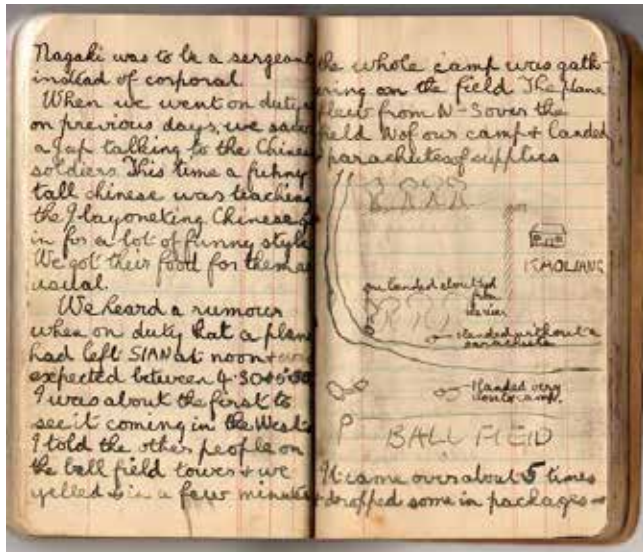 Nagaki was to be a sergeant
instead of corporal.
When we went on duty
on previous days, we saw
a Jap talking to the Chinese
soldiers. This time a funny
tall chinese was teaching
the J bayoneting Chinese
in for a lot of funny style
We got their food for them as
usual.
We heard a rumour
when on duty that a plane
had left SIAN at noon +
expected between 4.30 + 5.30
I was about the first to
see it coming in the West
I told the other people on
the ball field tower + we
yelled + in a few minutes
the whole camp was gath-
ering on the field The plane
flew from N-S over the
field N of our camp + landed
parachutes of supplies
KAOLIANG
one landed about
from
landed without a
parachute
1 landed very
camp.
BALL FIELD
It came over about 5 times
+ dropped some in packages